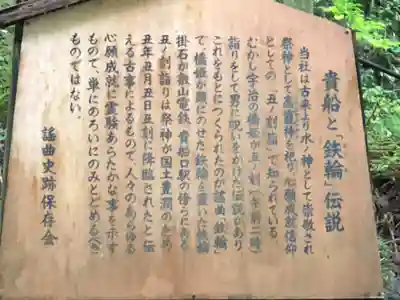 貴船と「鉄輪」伝説
当社は古来より水ノ神として崇敬され
祭神として高龗神を祀り、心願成就信仰
としての「丑ノ刻詣」で知られている
むかし宇治の橋姫が丑ノ刻(午前二時)
詣りをして男に呪いをかけた伝説があり
これをもとにつくられたのが謡曲「鉄輪」
で、橋姫が頭にのせた鉄輪を置いた鉄輪
掛石が叡山電鉄、貴船口駅の傍らにある
丑ノ刻詣りは祭神が国土豊潤のため
丑年丑月丑日丑刻に降臨されたと伝
える古事によるもので、人々のあらゆる
心願成就に霊験あらたかな事を示す
もので、単にのろいにのみとどめるべき
ものではない。
謡曲史跡保存会